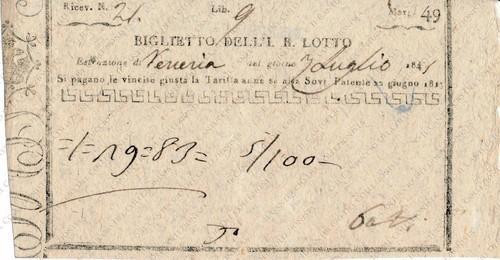 Ricev. N. 21. Lib. 9 Mat. 49
BIGLIETTO DELL'I. R. LOTTO
Estrazione di Venezia del giorno 7 Luglio 18
Si pagano le vincite giusta la Tariffa annessa alla Sovr. Patente 22 giugno 18
=1=19=83= 5/100—